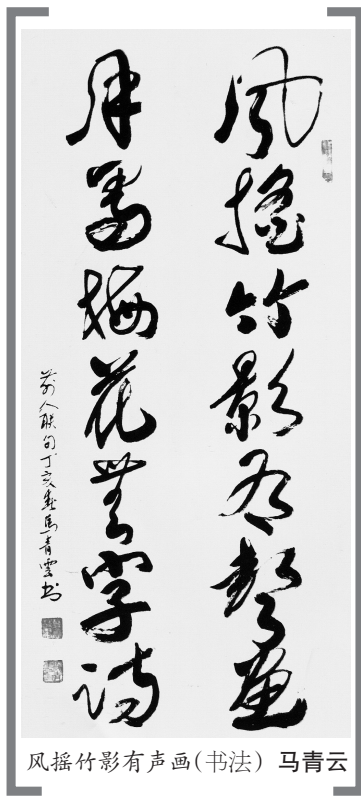 風搖竹影有聲畫
月寫梅花無字詩
前人联句丁亥春馬青雲书
风摇竹影有声画(书法) 马青云